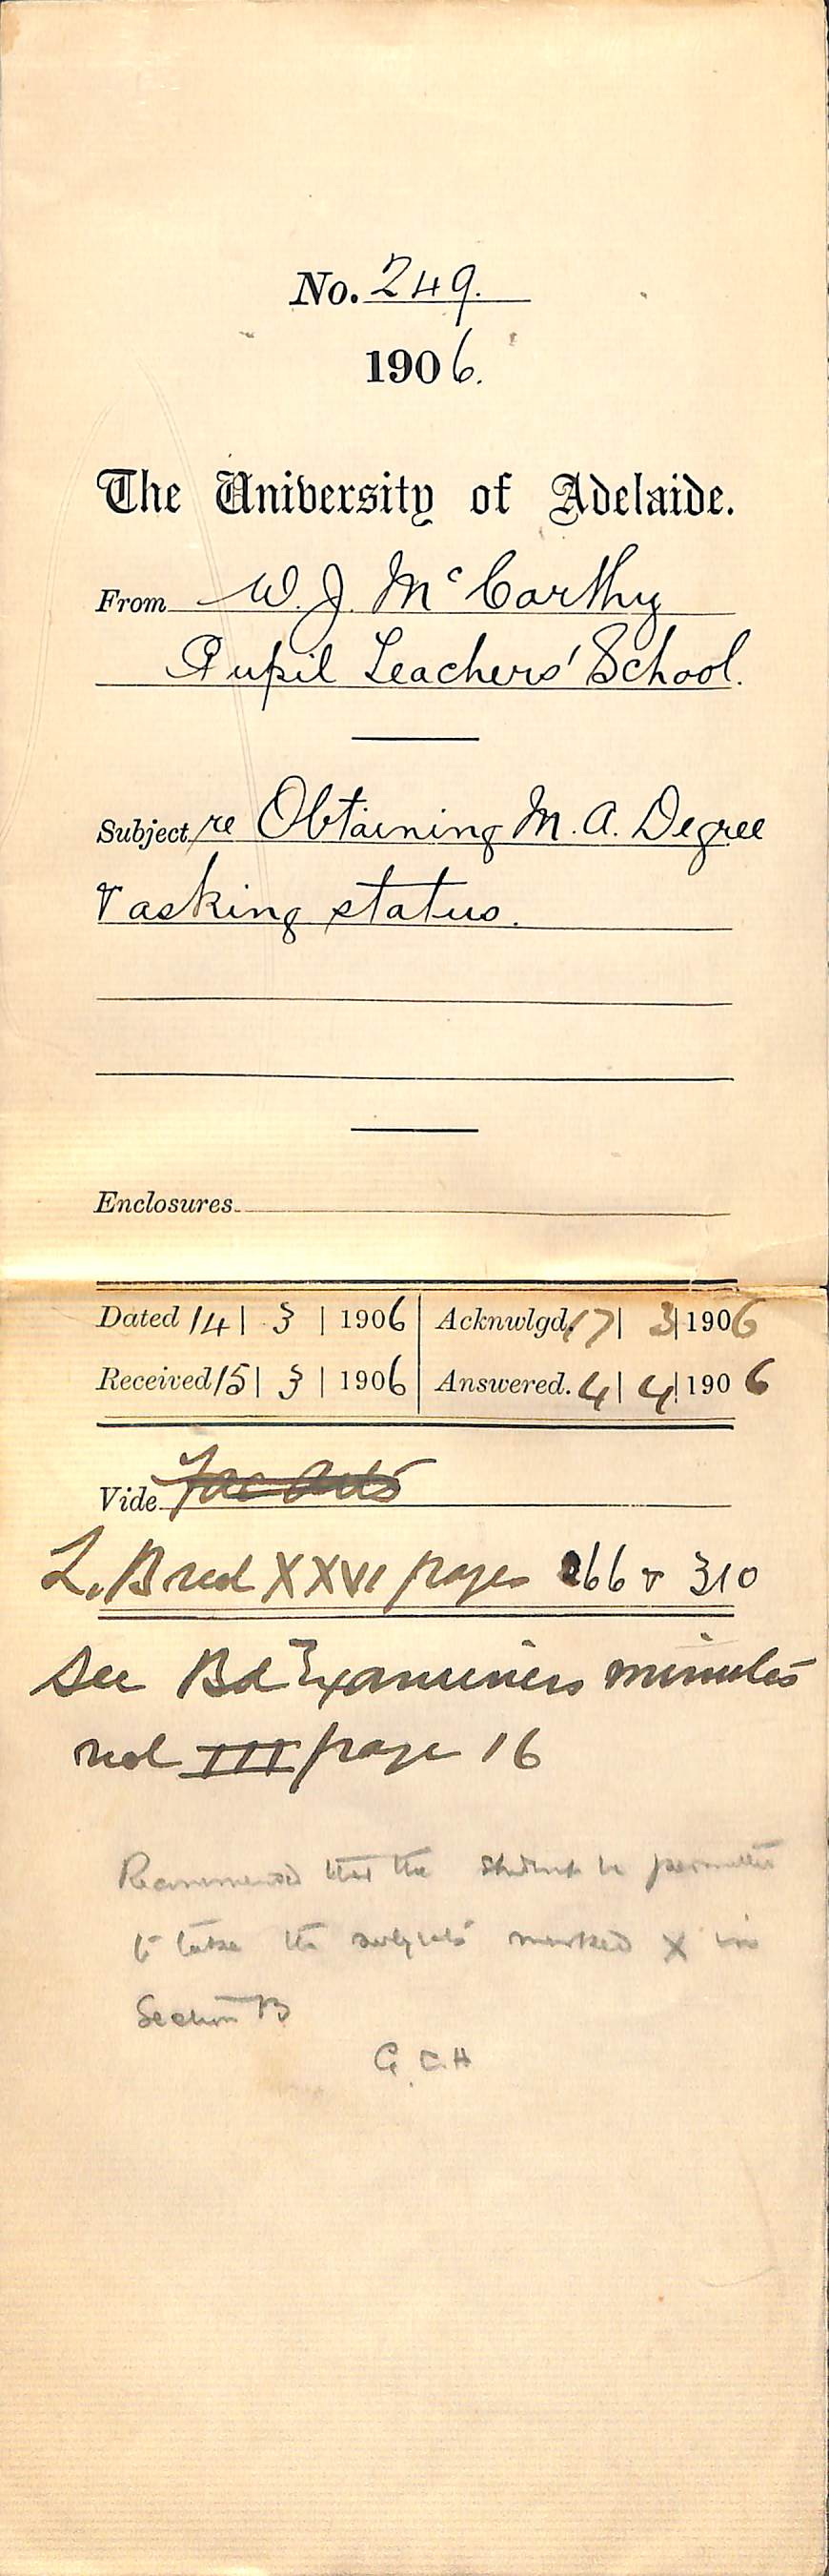 No. 249.
1906.
The University of Adelaide.
From W. J. McCarthy
Pupil Teachers' School.
Subject re Obtaining M.A. Degree
& asking status.
Enclosures
Dated 14 | 3 | 1906 Acknwlgd. 17 | 3 | 1906
Received 15 | 3 | 1906 Answered. 4 | 4 | 1906
Vide Fac Arts
L. B red XXVI pages 266 & 310
See Bd Examiners minutes
vol III page 16
Recommended that the student be permitted
to take the subjects marked X in
Section B
G. C. H